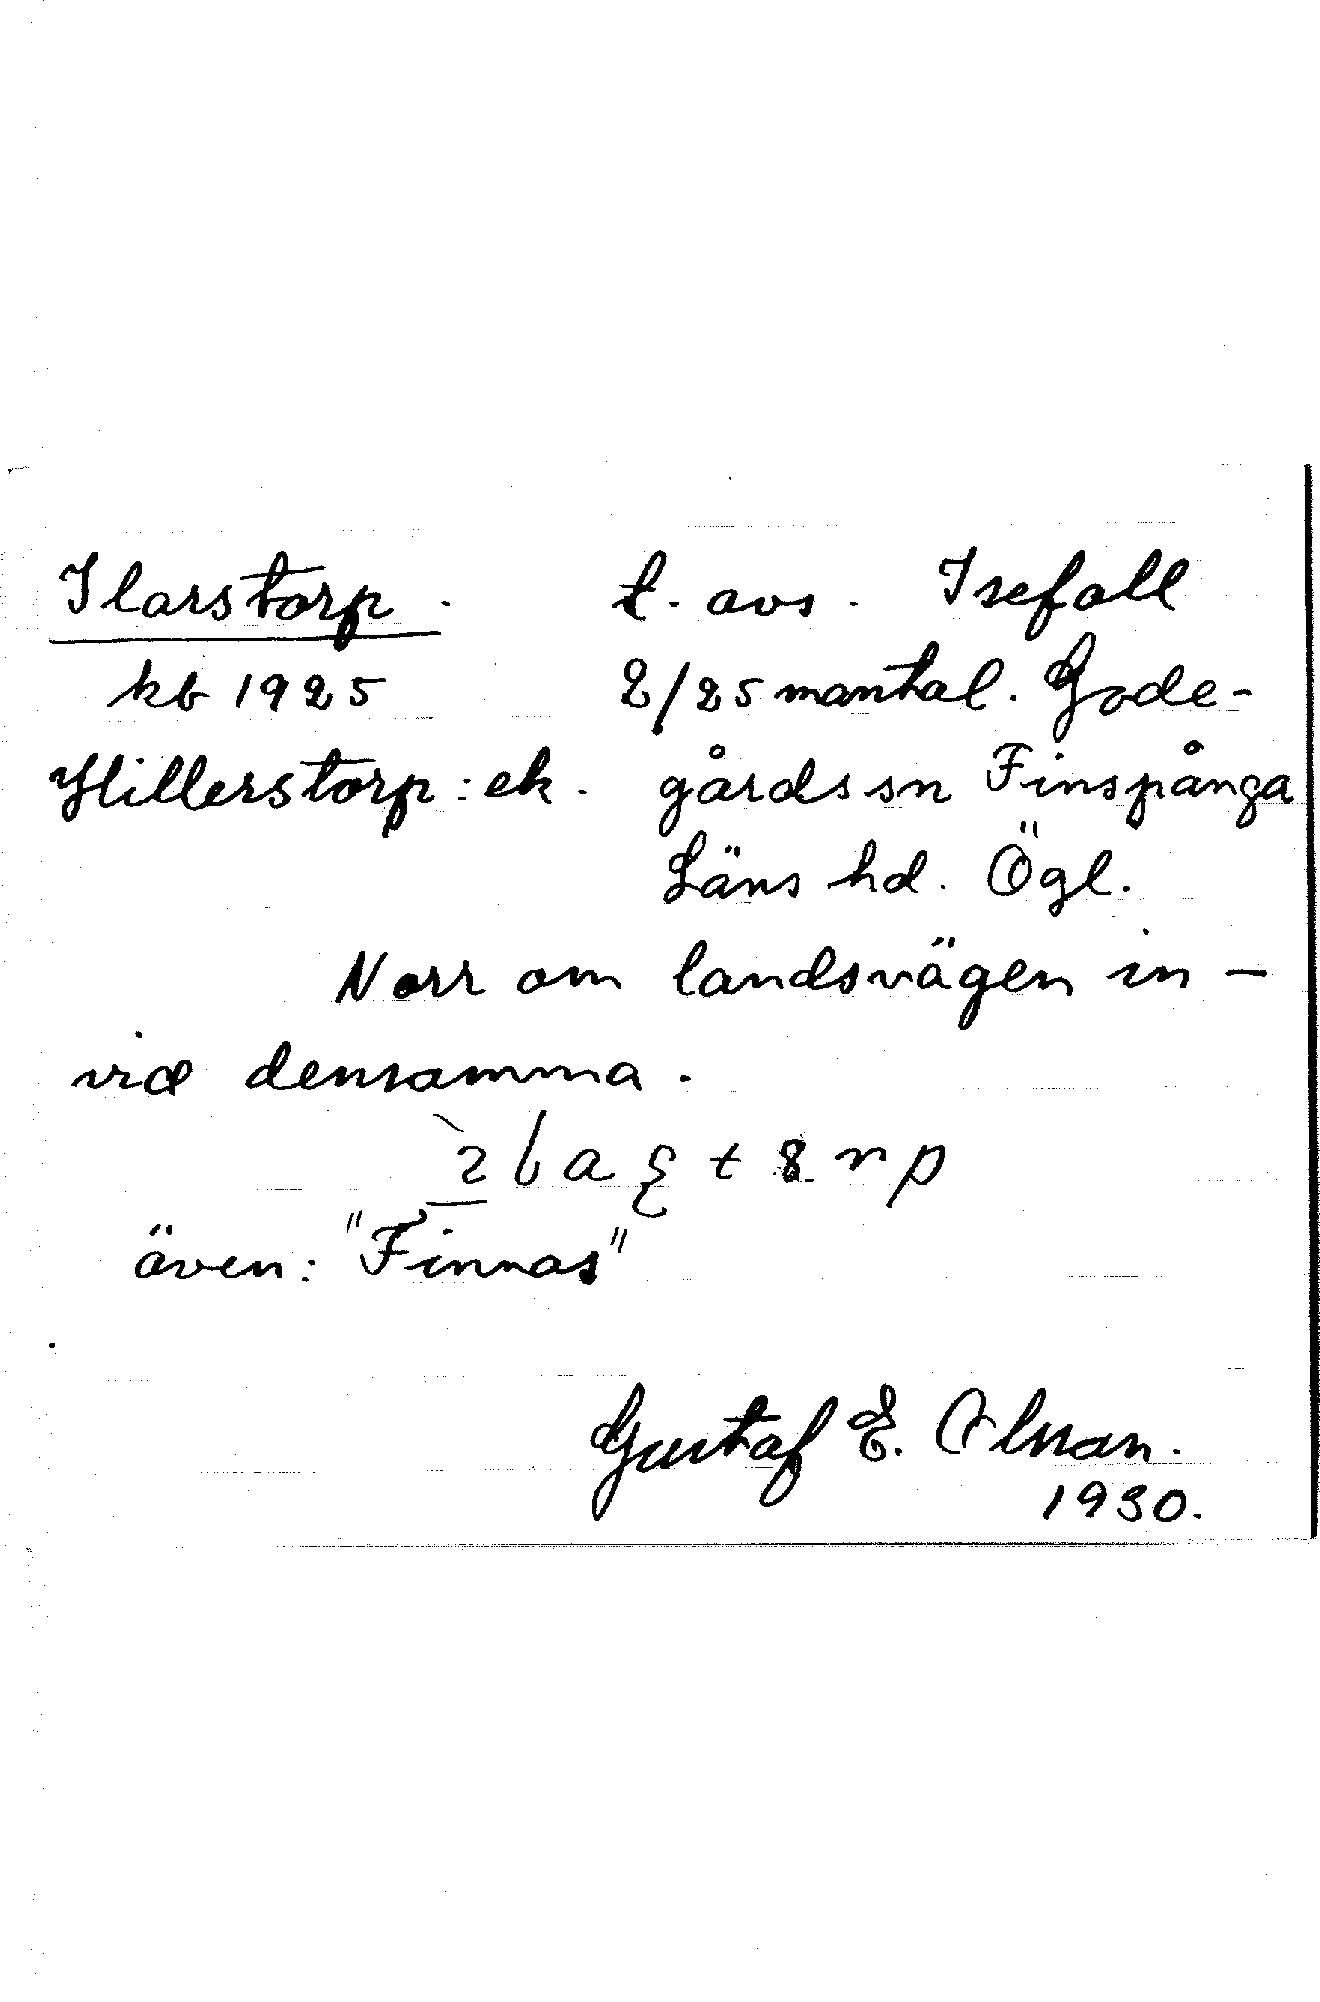 Ilarstorp. t. avs. Isefall
kb 1925 2/25 mantal. Gode-
Hillerstorp: ek. gårds sn Finspånga
Läns hd. Ögl.
Norr om landsvägen in-
vid densamma.
även: "Finnas"
Gustaf E. Olsson.
1930.